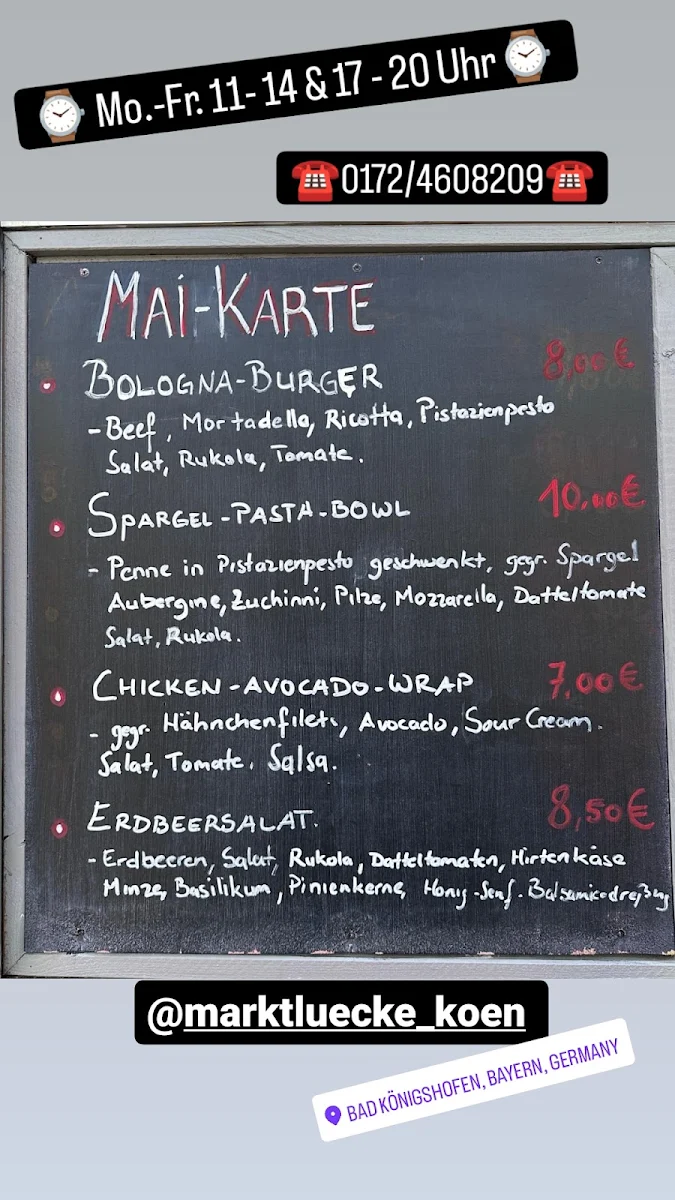 Mo.-Fr. 11-14 & 17-20 Uhr
0172/4608209
MAI-KARTE
BOLOGNA-BURGER 8,00€
- Beef, Mortadella, Ricotta, Pistazienpesto
Salat, Rukola, Tomate.
SPARGEL-PASTA-BOWL 10.00€
- Penne in Pistazienpesto geschwenkt, gegr. Spargel
Aubergine, Zuchinni, Pilze, Mozzarella, Datteltomate
Salat, Rukola.
CHICKEN-AVOCADO-WRAP 7,00€
- gegr. Hähnchenfilet, Avocado, Sour Cream.
Salat, Tomate, Salsa.
ERDBEERSALAT. 8,50€
- Erdbeeren, Salat, Rukola, Datteltomaten, Hirtenkäse
Minze, Basilikum, Pinienkerne, Honig-Senf-Balsamicodreßing
@marktluecke_koen
BAD KÖNIGSHOFEN, BAYERN, GERMANY